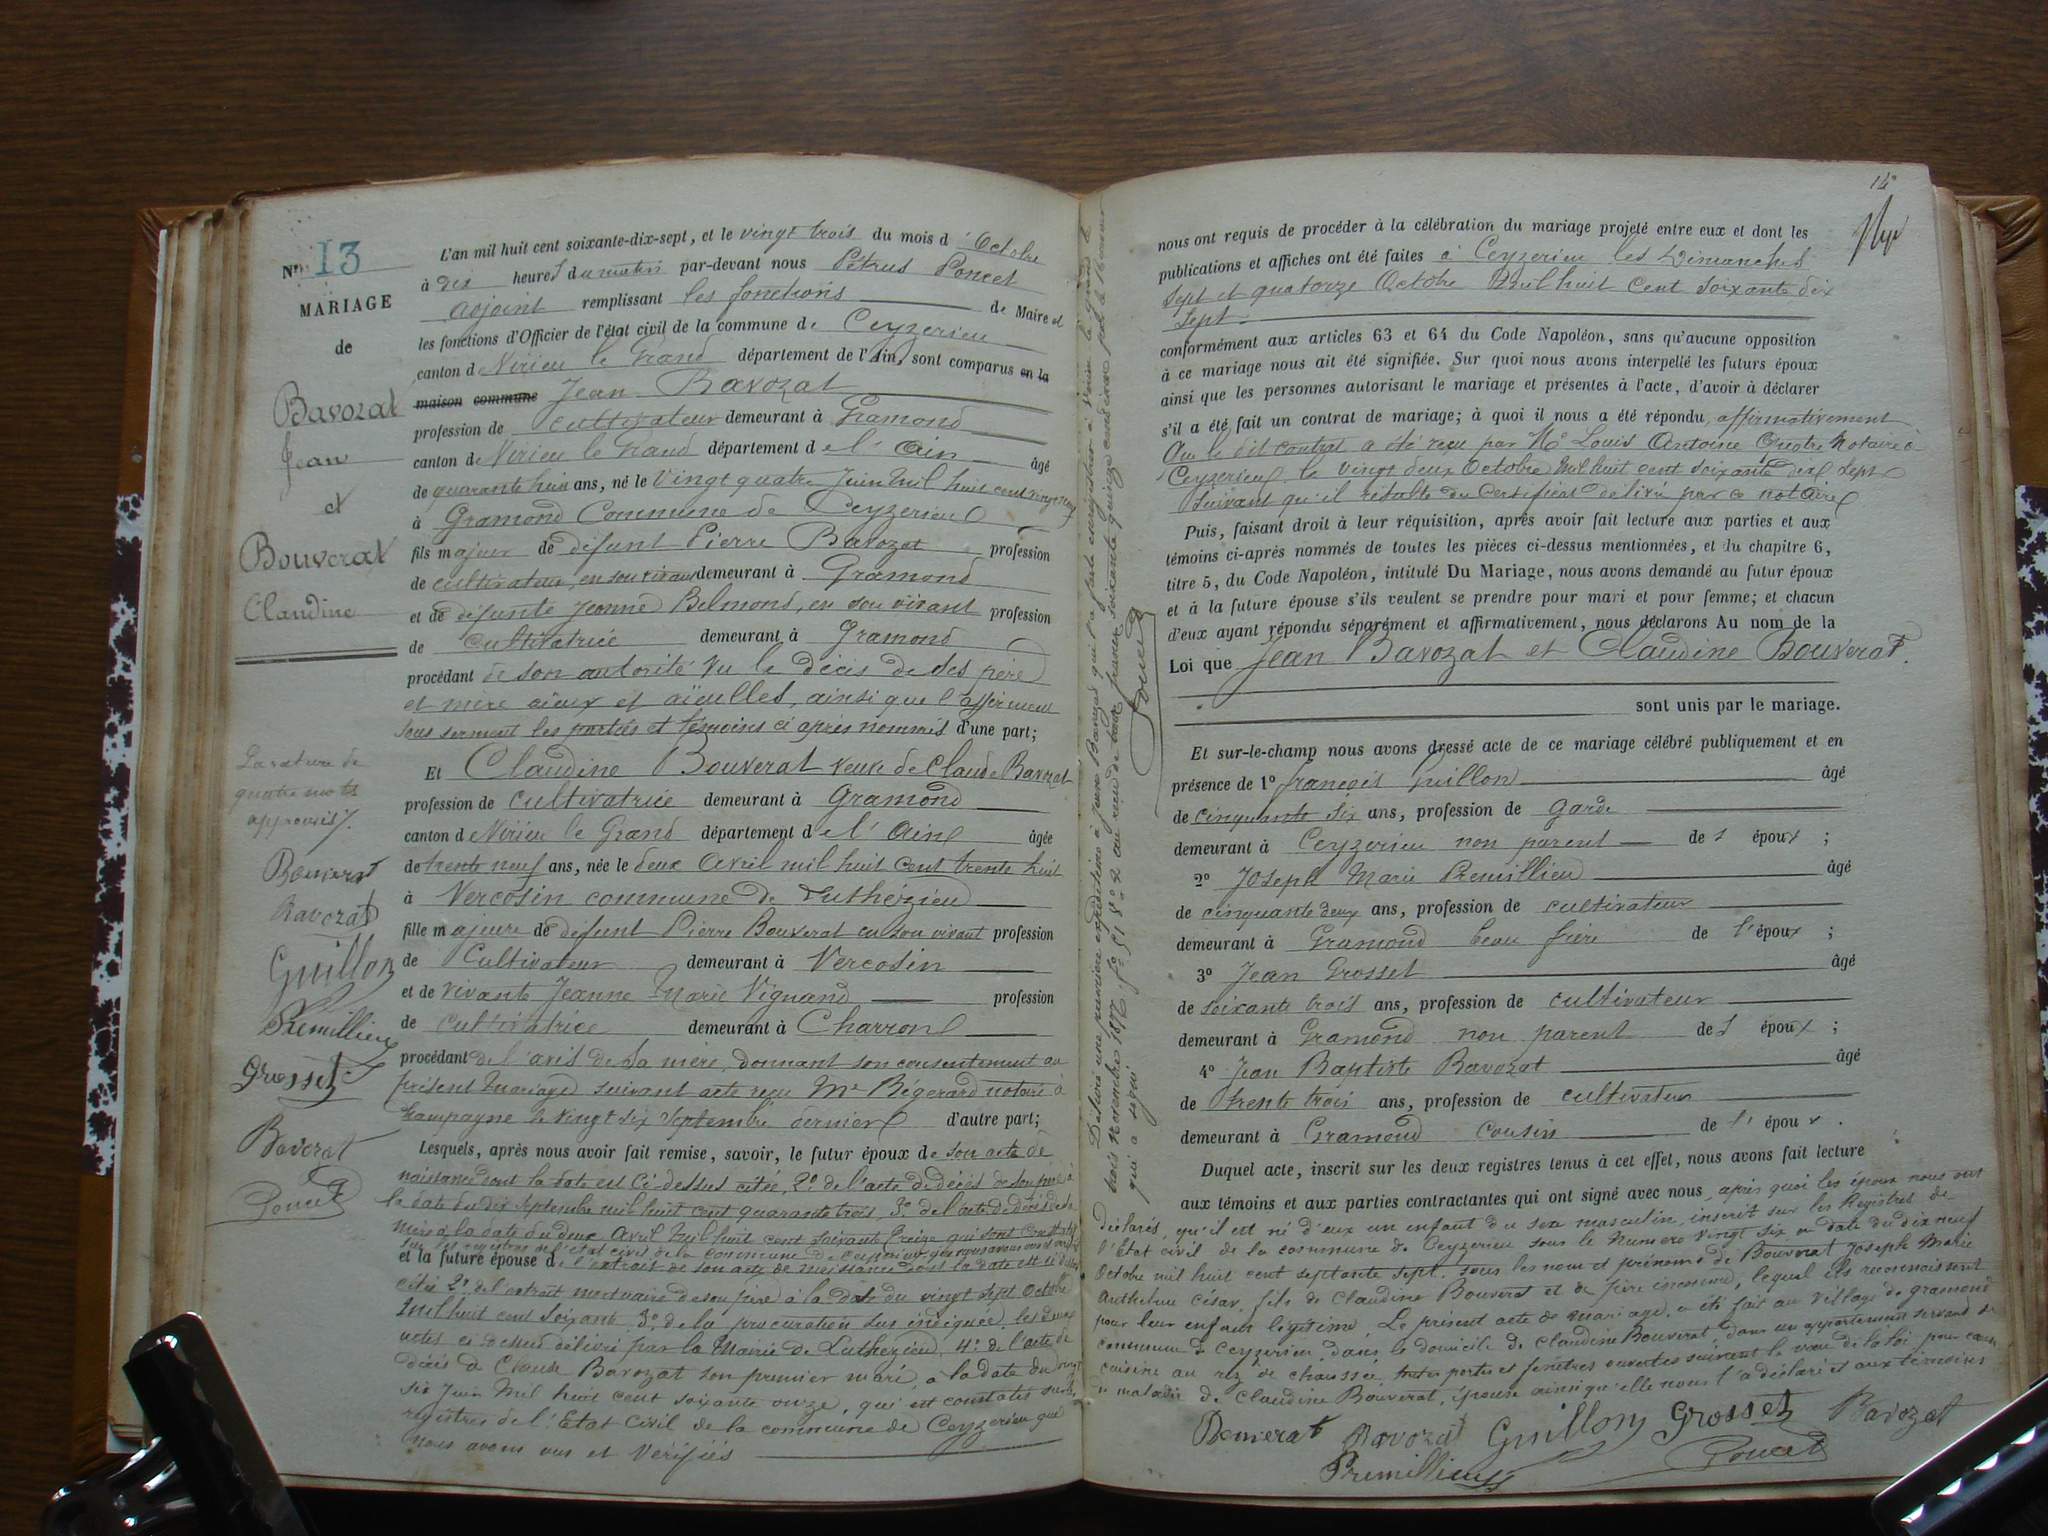 Nº 13
MARIAGE
de
Bavozat
Jean
et
Bouverat
Claudine
La rature de
quatre mots
approuvés
Bouverat
Bavozat
Guillon
Premillieu
Grosset
Bavozat
Poncet
L'an mil huit cent soixante-dix-sept, et le vingt trois du mois d'Octobre
à dix heures du matin par-devant nous Pétrus Poncet
adjoint remplissant les fonctions de Maire et
les fonctions d'Officier de l'état civil de la commune de Ceyzerieu
canton de Virieu le Grand département de l'Ain, sont comparus en la
maison commune Jean Bavozat
profession de cultivateur demeurant à Gramond
canton de Virieu le Grand département de l'Ain âgé
de quarante huit ans, né le Vingt quatre Juin mil huit cent vingt neuf
à Gramond Commune de Ceyzerieu
fils majeur de défunt Pierre Bavozat profession
de cultivateur, en son vivant demeurant à Gramond
et de défunte Jeanne Belmond, en son vivant profession
de cultivatrice demeurant à Gramond
procédant de son autorité vu le décès de ses père
et mère aïeux et aïeulles, ainsi que l'affirment
sous serment les parties et témoins ci après nommés d'une part;
Et Claudine Bouverat veuve de Claude Bavozat
profession de cultivatrice demeurant à Gramond
canton de Virieu le Grand département de l'Ain âgée
de trente neuf ans, née le deux Avril mil huit cent trente huit
à Vercosin commune de Luthézieu
fille majeure de défunt Pierre Bouverat en son vivant profession
de Cultivateur demeurant à Vercosin
et de vivante Jeanne Marie Vignand profession
de cultivatrice demeurant à Charron
procédant de l'avis de sa mère, donnant son consentement au
présent mariage suivant acte reçu Me Bégerard notaire à
Champagne le vingt six septembre dernier d'autre part;
Lesquels, après nous avoir fait remise, savoir, le futur époux de son acte de
naissance dont la date est ci-dessus citée, 2º de l'acte de décès de son père à
la date du dix septembre mil huit cent quarante trois, 3º de l'acte de décès de sa
mère à la date du deux Avril mil huit cent soixante treize qui sont constatés
sur les registres de l'état civil de la commune de Ceyzerieu que nous avons vus et vérifiés
et la future épouse de l'extrait de son acte de naissance dont la date est ci dessus
citée 2º de l'extrait mortuaire de son père à la date du vingt sept Octobre
mil huit cent soixante 3º de la procuration sus indiquée, les deux
actes ci dessus délivrés par la Mairie de Luthézieu, 4º de l'acte de
décès de Claude Bavozat son premier mari, à la date du vingt
six Juin mil huit cent soixante onze, qui est constatés sur les
registres de l'Etat Civil de la commune de Ceyzerieu que
nous avons vus et vérifiés
trois Novembre 1877
qui a signé
Poncet
14
nous ont requis de procéder à la célébration du mariage projeté entre eux et dont les
publications et affiches ont été faites à Ceyzerieu les Dimanches
sept et quatorze Octobre mil huit cent soixante dix
sept
conformément aux articles 63 et 64 du Code Napoléon, sans qu'aucune opposition
à ce mariage nous ait été signifiée. Sur quoi nous avons interpellé les futurs époux
ainsi que les personnes autorisant le mariage et présentes à l'acte, d'avoir à déclarer
s'il a été fait un contrat de mariage; à quoi il nous a été répondu affirmativement
Que le dit contrat a été reçu par Me Louis Antoine notaire à
Ceyzerieu le vingt deux Octobre mil huit cent soixante dix sept
suivant qu'il résulte du certificat délivré par ce notaire
Puis, faisant droit à leur réquisition, après avoir fait lecture aux parties et aux
témoins ci-après nommés de toutes les pièces ci-dessus mentionnées, et du chapitre 6,
titre 5, du Code Napoléon, intitulé Du Mariage, nous avons demandé au futur époux
et à la future épouse s'ils veulent se prendre pour mari et pour femme; et chacun
d'eux ayant répondu séparément et affirmativement, nous déclarons Au nom de la
Loi que Jean Bavozat et Claudine Bouverat.
sont unis par le mariage.
Et sur-le-champ nous avons dressé acte de ce mariage célébré publiquement et en
présence de 1º françois Guillon âgé
de cinquante six ans, profession de garde
demeurant à Ceyzerieu non parent des époux;
2º Joseph Marie Premillieu âgé
de cinquante deux ans, profession de cultivateur
demeurant à Gramond beau frère de l'époux;
3º Jean Grosset âgé
de soixante trois ans, profession de cultivateur
demeurant à Gramond non parent des époux;
4º Jean Baptiste Bavozat âgé
de trente trois ans, profession de cultivateur
demeurant à Gramond cousin de l'époux.
Duquel acte, inscrit sur les deux registres tenus à cet effet, nous avons fait lecture
aux témoins et aux parties contractantes qui ont signé avec nous, après quoi les époux nous ont
déclarés, qu'il est né d'eux un enfant du sexe masculin, inscrit sur les Registres de
l'Etat civil de la commune de Ceyzerieu sous le numero vingt six a date du dix neuf
Octobre mil huit cent septante sept, sous les nom et prénoms de Bouverat Joseph Marie
Anthelme César, fils de Claudine Bouverat et de père inconnu, lequel ils reconnaissent
pour leur enfant légitime. Le présent acte de mariage, a été fait au village de gramond
commune de Ceyzerieu, dans le domicile de Claudine Bouverat, dans un appartement servant de
cuisine au rez de chaussée, toutes portes et fenêtres ouvertes suivant le vœu de la loi pour cause
de maladie de Claudine Bouverat, épouse ainsi qu'elle nous l'a déclaré et aux témoins
Bouverat Bavozat Guillon Grosset Bavozat
Premillieu Poncet